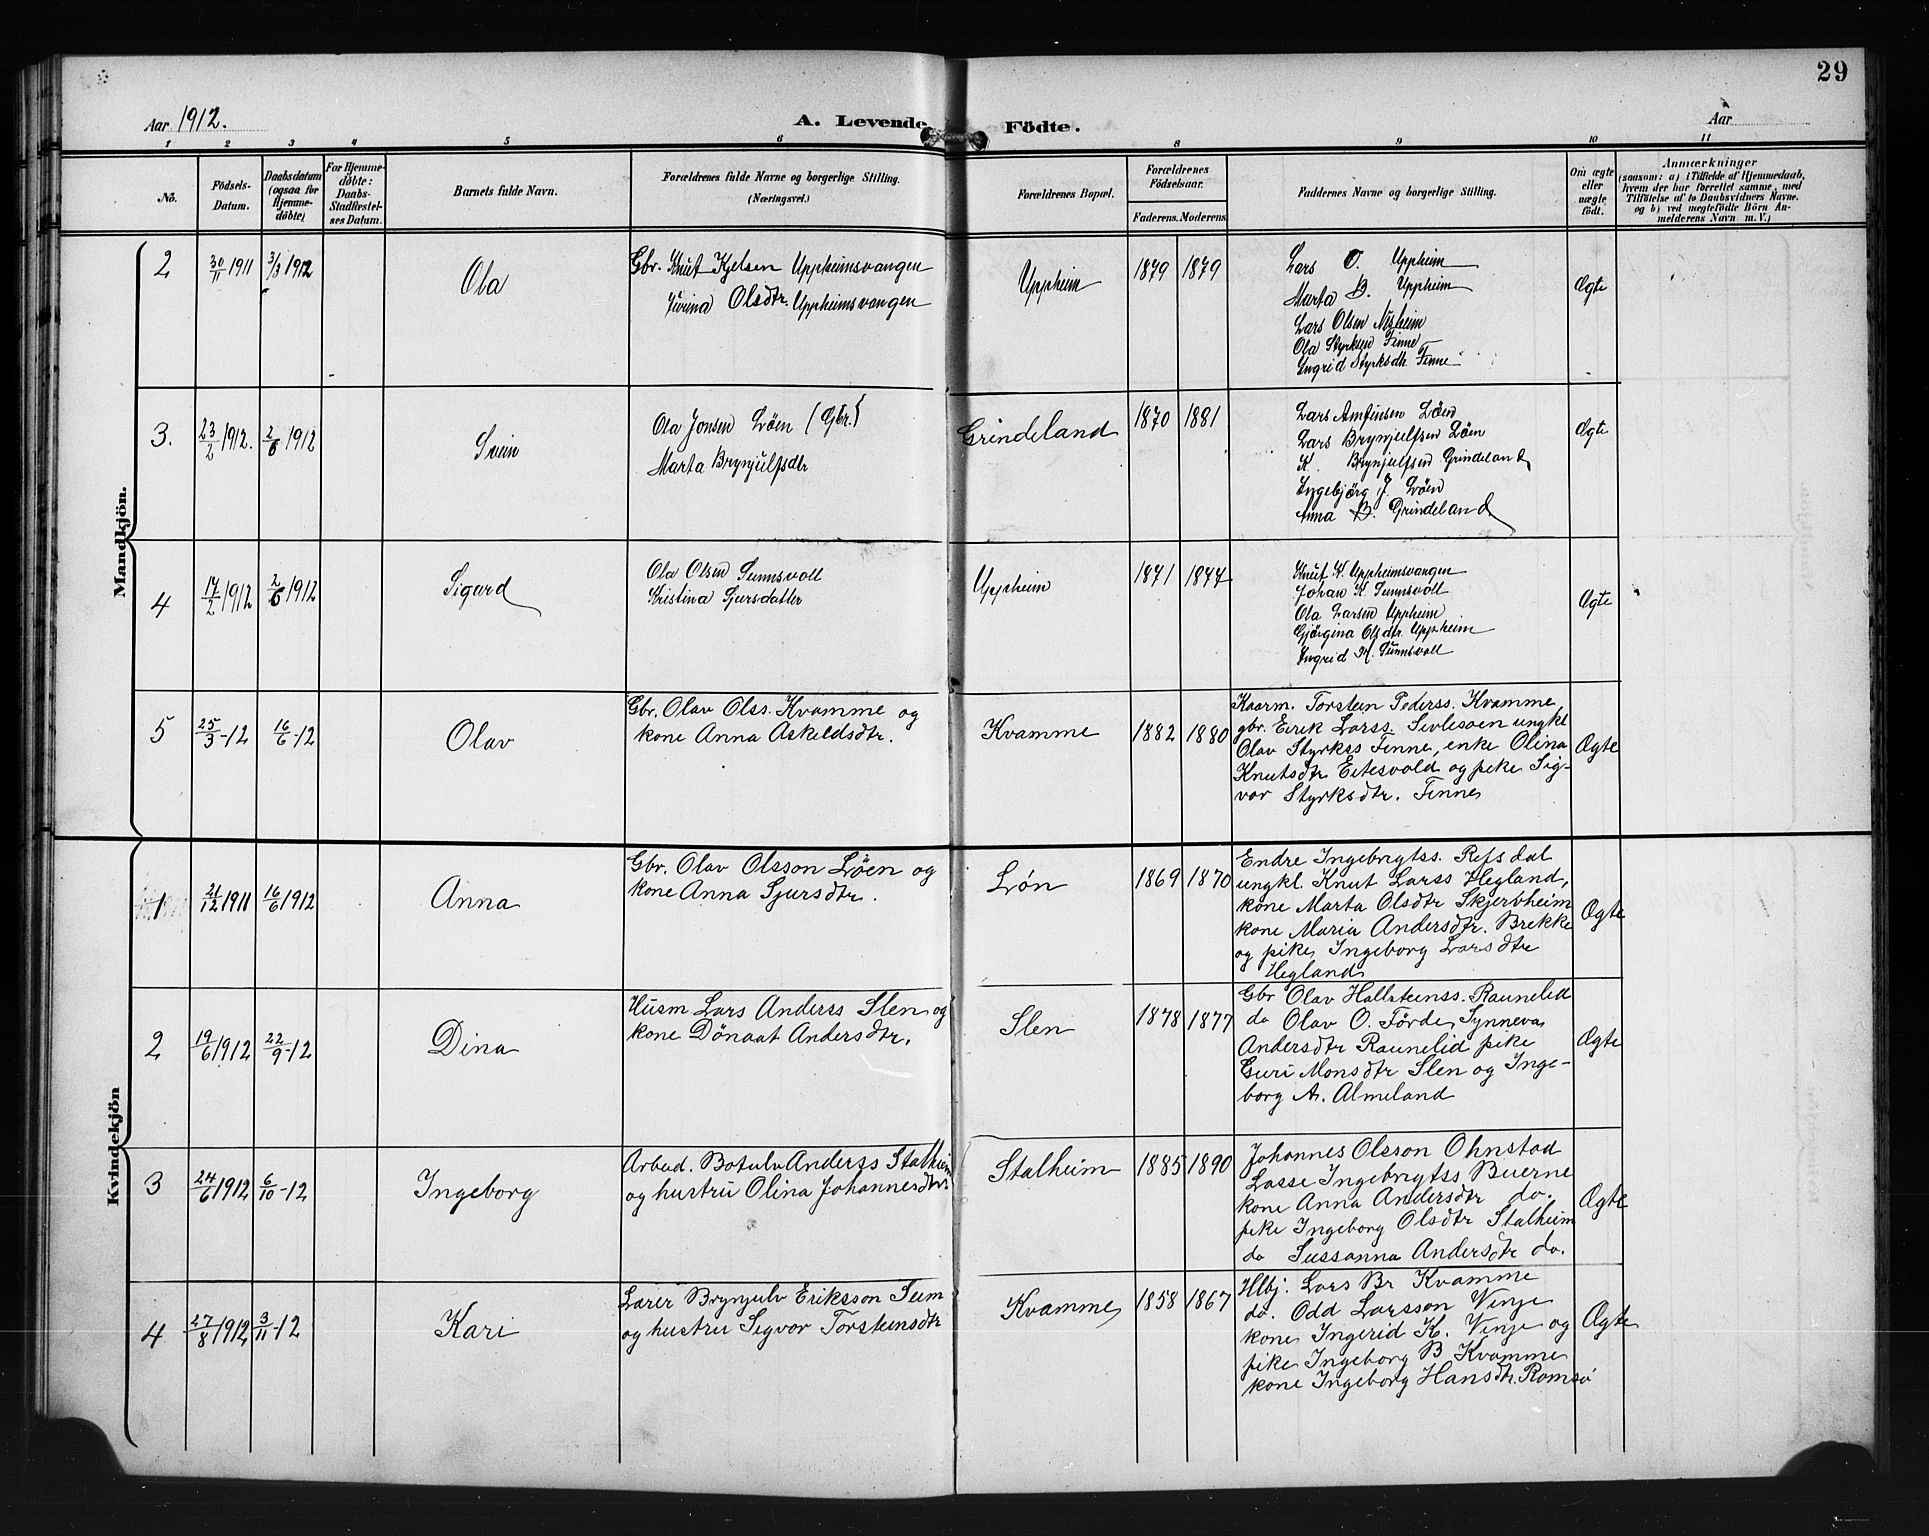 29
Aar 1912.
A. Levende Födte.
Aar
1 2 3 4 5 6 8 9 10 11
No.
Födsels-Datum.
Daabsdatum (ogsaa for Hjemmedöbte)
For Hjemmedöbte: Daabs-Stadfæstelses Datum.
Barnets fulde Navn.
Forældrenes fulde Navne og borgerlige Stilling.
(Næringsvei.)
Forældrenes Bopæl.
Forældrenes Födselsaar.
Faderens. Moderens.
Faddernes Navne og borgerlige Stilling.
Om ægte eller uægte födt.
Anmærkninger
(saasom: a) i Tilfælde af Hjemmedaab,
hvem der har forrettet samme, med
Tilföielse af to Daabsvidners Navne.
og b) ved uægtefödte Börn Anmelderens Navn m. V.)
Mandkjön.
2 30/11 1911 3/3 1912 Ola
Gbr. Knut Kjelsen Uppheimsvangen
Jorina Olsdtr. Uppheimsvangen
Uppheim 1879 1879
Lars O. Uppheim
Marta B. Uppheim
Lars Olsen Nisheim
Ola Styrksen Finne
Ingrid Styrksdtr Finne
Ægte
3. 23/2 1912. 2/6 1912 Svein
Ola Jonsen Löen (Gbr.)
Marta Brynjulfsdtr
Grindeland 1870 1881
Lars Amfinsen Löen
Lars Brynjulfsen Löen
K. Brynjulfsen Grindeland
Ingebjörg J. Löen
Anna B. Grindeland
Ægte
4 17/2 1912 2/6 1912 Sigurd
Ola Olsen Sunnsvoll
Kristina Sjursdatter
Uppheim 1871 1877
Knut K. Uppheimsvangen
Johan K Sunnsvoll
Ola Larsen Uppheim
Gjörgina Olsdtr Uppheim
Ingrid M. Sunnsvoll
Ægte
5 25/3-12 16/6-12 Olav
Gbr. Olav Olss. Kvamme og
kone Anna Askeldsdtr.
Kvamme 1882 1880
Kaarm. Torstein Pederss. Kvamme,
gbr. Eirik Larss. Sivlesoen ungkl
Olav Styrkss Finne, enke Olina
Knutsdtr Eitesvold og pike Sig-
vor Styrksdtr. Finne
Ægte
Kvindekjön
1 21/12 1911 16/6 1912 Anna
Gbr. Olav Olsson Löen og
kone Anna Sjursdtr.
Lön 1869 1870
Endre Ingebrigtss. Refsdal
ungkl. Knut Larss Hegland,
kone Marta Olsdtr Skjervheim
kone Maria Andersdtr. Brekke
og pike Ingeborg Larsdtr
Hegland
Ægte
2 19/6 1912 22/9-12 Dina
Husm Lars Anderss Slen og
kone Dönaat Andersdtr.
Slen 1878 1877
Gbr Olav Hallsteinss. Raunelid
do Olav O. Förde, Synneva
Andersdtr Raunelid pike
Guri Monsdtr Slen og Inge-
borg A. Almeland
Ægte
3 24/6 1912 6/10-12 Ingeborg
Arbeid. Botulv Anderss Stalheim
og hustru Olina Johannesdtr.
Stalheim 1885 1890
Johannes Olsson Ohnstad
Lasse Ingebrigtss Buerne
kone Anna Andersdtr do.
pike Ingeborg Olsdtr Stalheim
do Sussanna Andersdtr do.
Ægte
4 27/8 1912 3/11-12 Kari
Lærer Brynjulv Eriksson Seim
og hustru Sigvor Torsteinsdtr
Kvamme 1858 1867
Hlbj. Lars Br Kvamme
do. Odd Larsson Vinje
kone Ingerid K. Vinje og
pike Ingeborg B Kvamme
kone Ingeborg Hansdtr. Romsö
Ægte